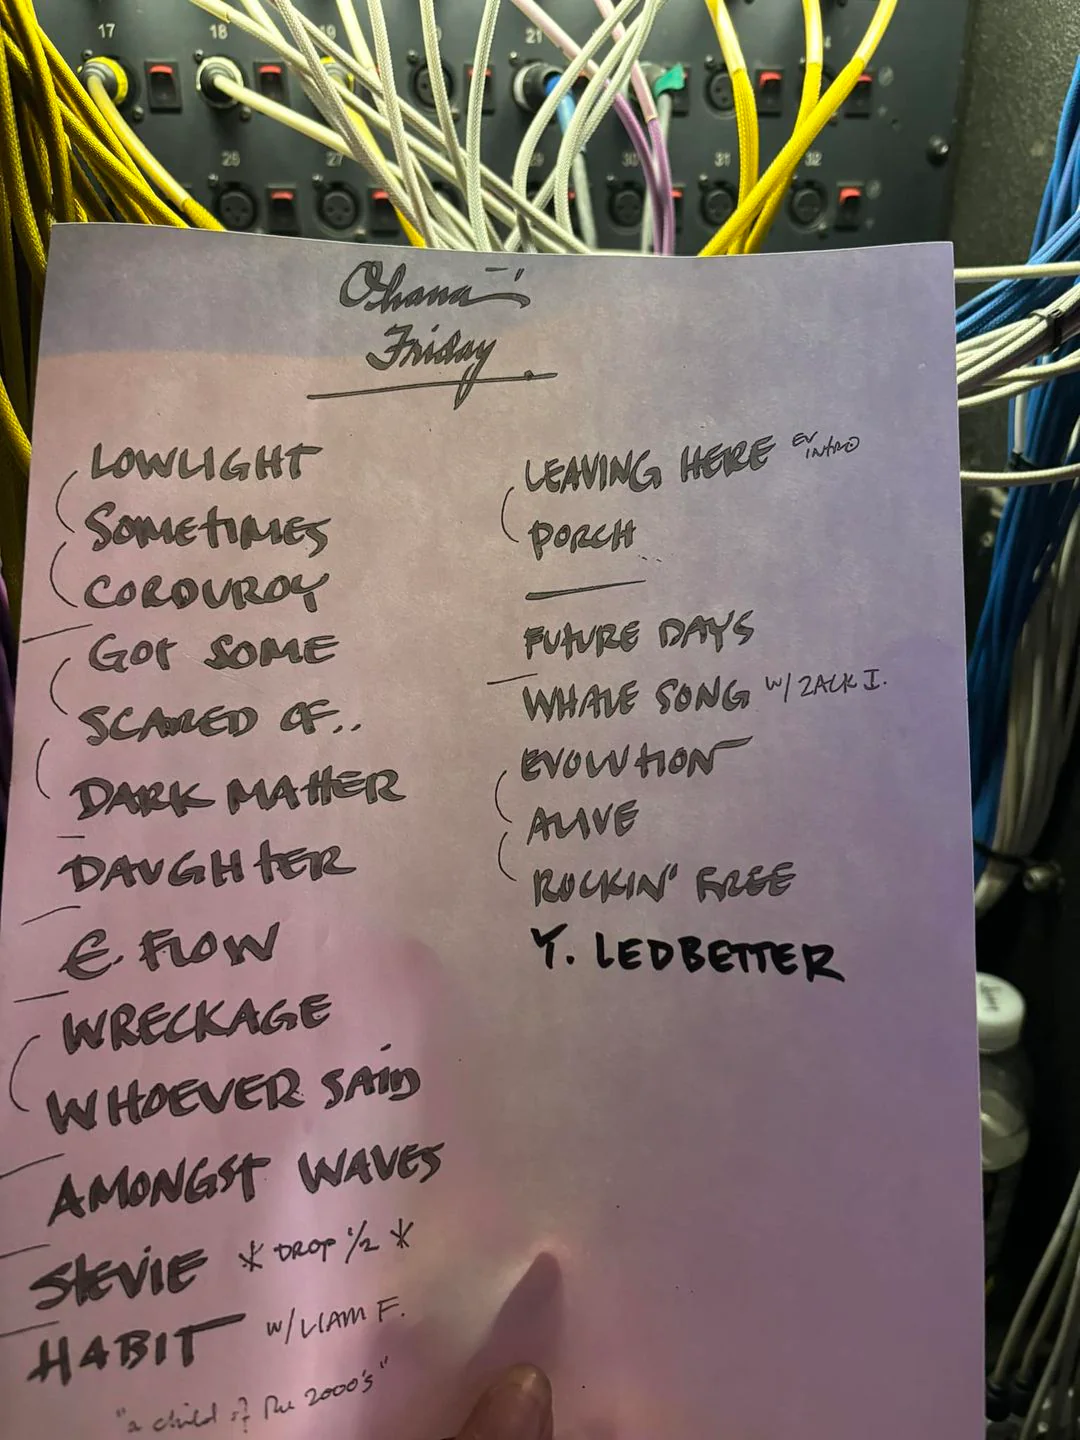 17 18 19 20 21
26 27 29 30 31 32
Ohana
Friday
LOWLIGHT
SOMETIMES
CORDUROY
GOT SOME
SCARED OF..
DARK MATTER
DAUGHTER
E. FLOW
WRECKAGE
WHOEVER SAID
AMONGST WAVES
STEVIE * DROP 1/2 *
HABIT w/ LIAM F.
"a child of the 2000's"
LEAVING HERE EV INTRO
PORCH
FUTURE DAYS
WHALE SONG w/ ZACK I.
EVOLUTION
ALIVE
ROCKIN' FREE
Y. LEDBETTER